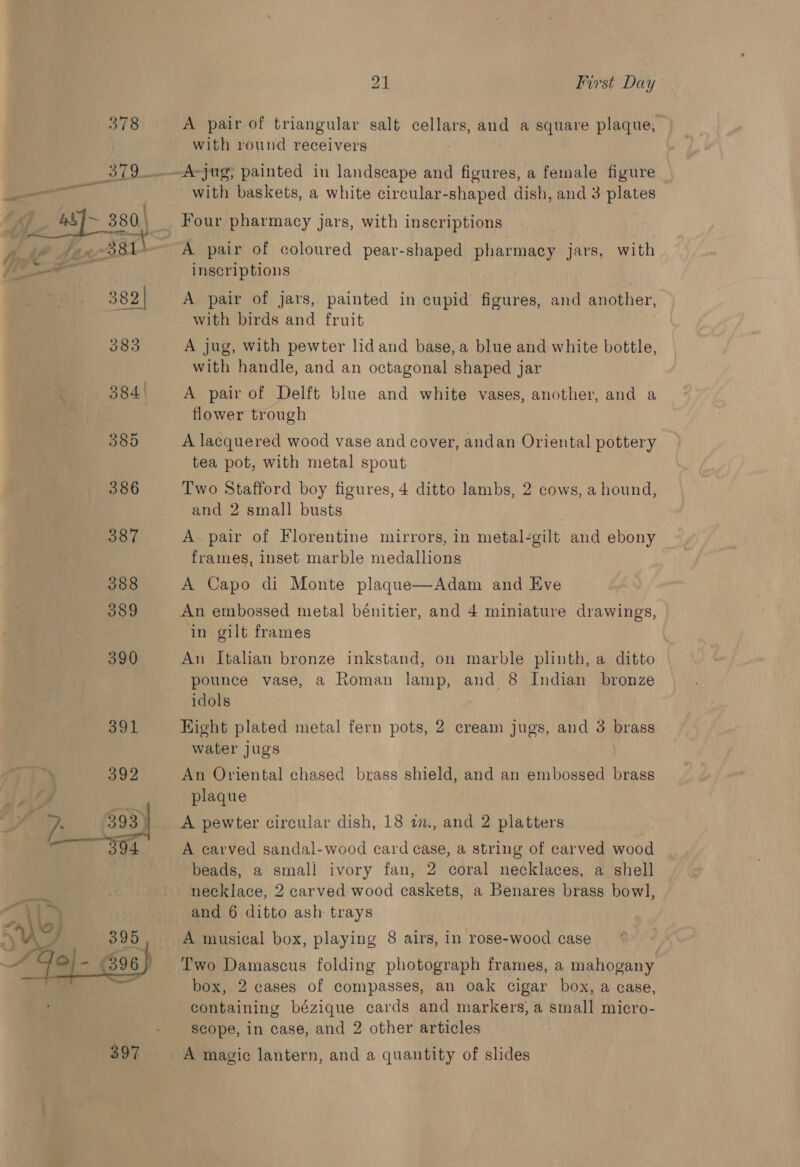 21 First Day
378 A pair of triangular salt cellars, and a square plaque,
with round receivers
379 A jug, painted in landscape and figures, a female figure
with baskets, a white circular-shaped dish, and 3 plates
45/- 380 Four pharmacy jars, with inscriptions
381 A pair of coloured pear-shaped pharmacy jars, with
inscriptions
382 A pair of jars, painted in cupid figures, and another,
with birds and fruit
383 A jug, with pewter lid and base, a blue and white bottle,
with handle, and an octagonal shaped jar
384 A pair of Delft blue and white vases, another, and a
flower trough
385 A lacquered wood vase and cover, and an Oriental pottery
tea pot, with metal spout
386 Two Stafford boy figures, 4 ditto lambs, 2 cows, a hound,
and 2 small busts
387 A pair of Florentine mirrors, in metal-gilt and ebony
frames, inset marble medallions
388 A Capo di Monte plaque—Adam and Eve
389 An embossed metal bénitier, and 4 miniature drawings,
in gilt frames
390 An Italian bronze inkstand, on marble plinth, a ditto
pounce vase, a Roman lamp, and 8 Indian bronze
idols
391 Eight plated metal fern pots, 2 cream jugs, and 3 brass
water jugs
392 An Oriental chased brass shield, and an embossed brass
plaque
7. 393 A pewter circular dish, 18 in., and 2 platters
394 A carved sandal-wood card case, a string of carved wood
beads, a small ivory fan, 2 coral necklaces, a shell
necklace, 2 carved wood caskets, a Benares brass bowl,
and 6 ditto ash trays
395 A musical box, playing 8 airs, in rose-wood case
396 Two Damascus folding photograph frames, a mahogany
box, 2 cases of compasses, an oak cigar box, a case,
containing bézique cards and markers, a small micro-
scope, in case, and 2 other articles
397 A magic lantern, and a quantity of slides